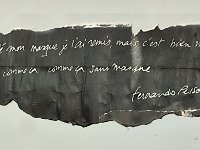 mon masque je l'ai remis mais c'est bien
comme ça comme ça sans masque
Fernando Pesso